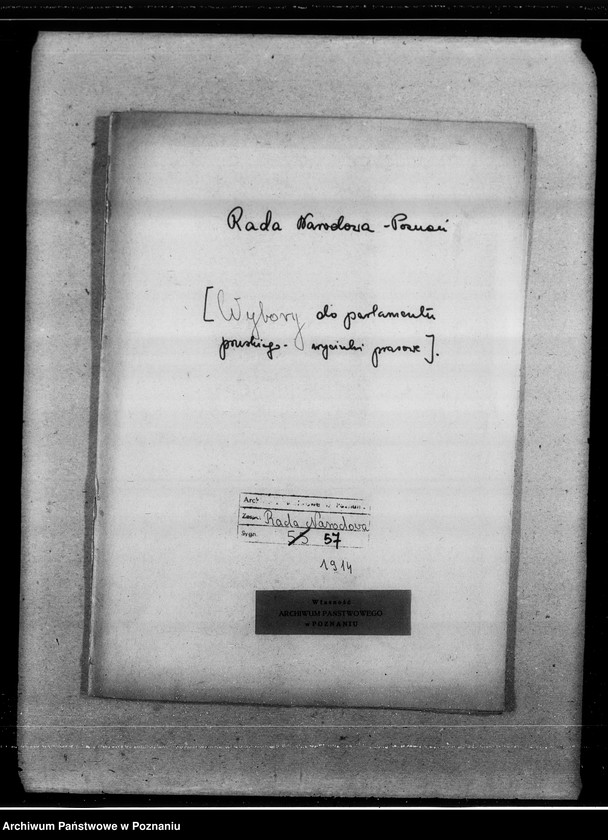 Rada Narodowa - Poznań
[Wybory do parlamentu
pruskiego - wycinki prasowe].
Arch
Zespół: Rada Narodowa
Sygn. 55 57
1914
Własność
ARCHIWUM PAŃSTWOWEGO
w POZNANIU
Archiwum Państwowe w Poznaniu